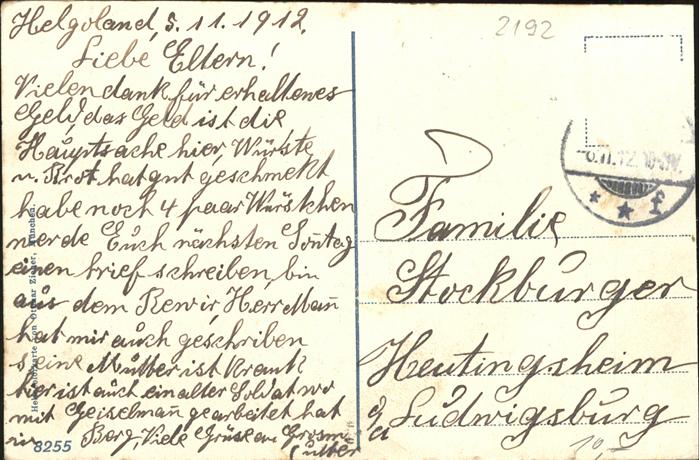 Helgoland, 5.11.1912.
Liebe Eltern!
Vielen dank für erhaltenes
Geld, das Geld ist die
Hauptsache hier, Würste
u. Brot hat gut geschmekt
habe noch 4 paar Würstchen
werde Euch nächsten Sontag
einen brief schreiben, bin
aus dem Rewir, Herr Mañ
hat mir auch geschriben
seine Mutter ist Krank
hier ist auch ein alter Soldat wo
mit Geiselmañ gearbeitet hat
in Berg, Viele Grüse an Grosm
utter
8255
2192
6.11.12.
* * f
Familie
Stockburger
Heutingsheim
Ludwigsburg